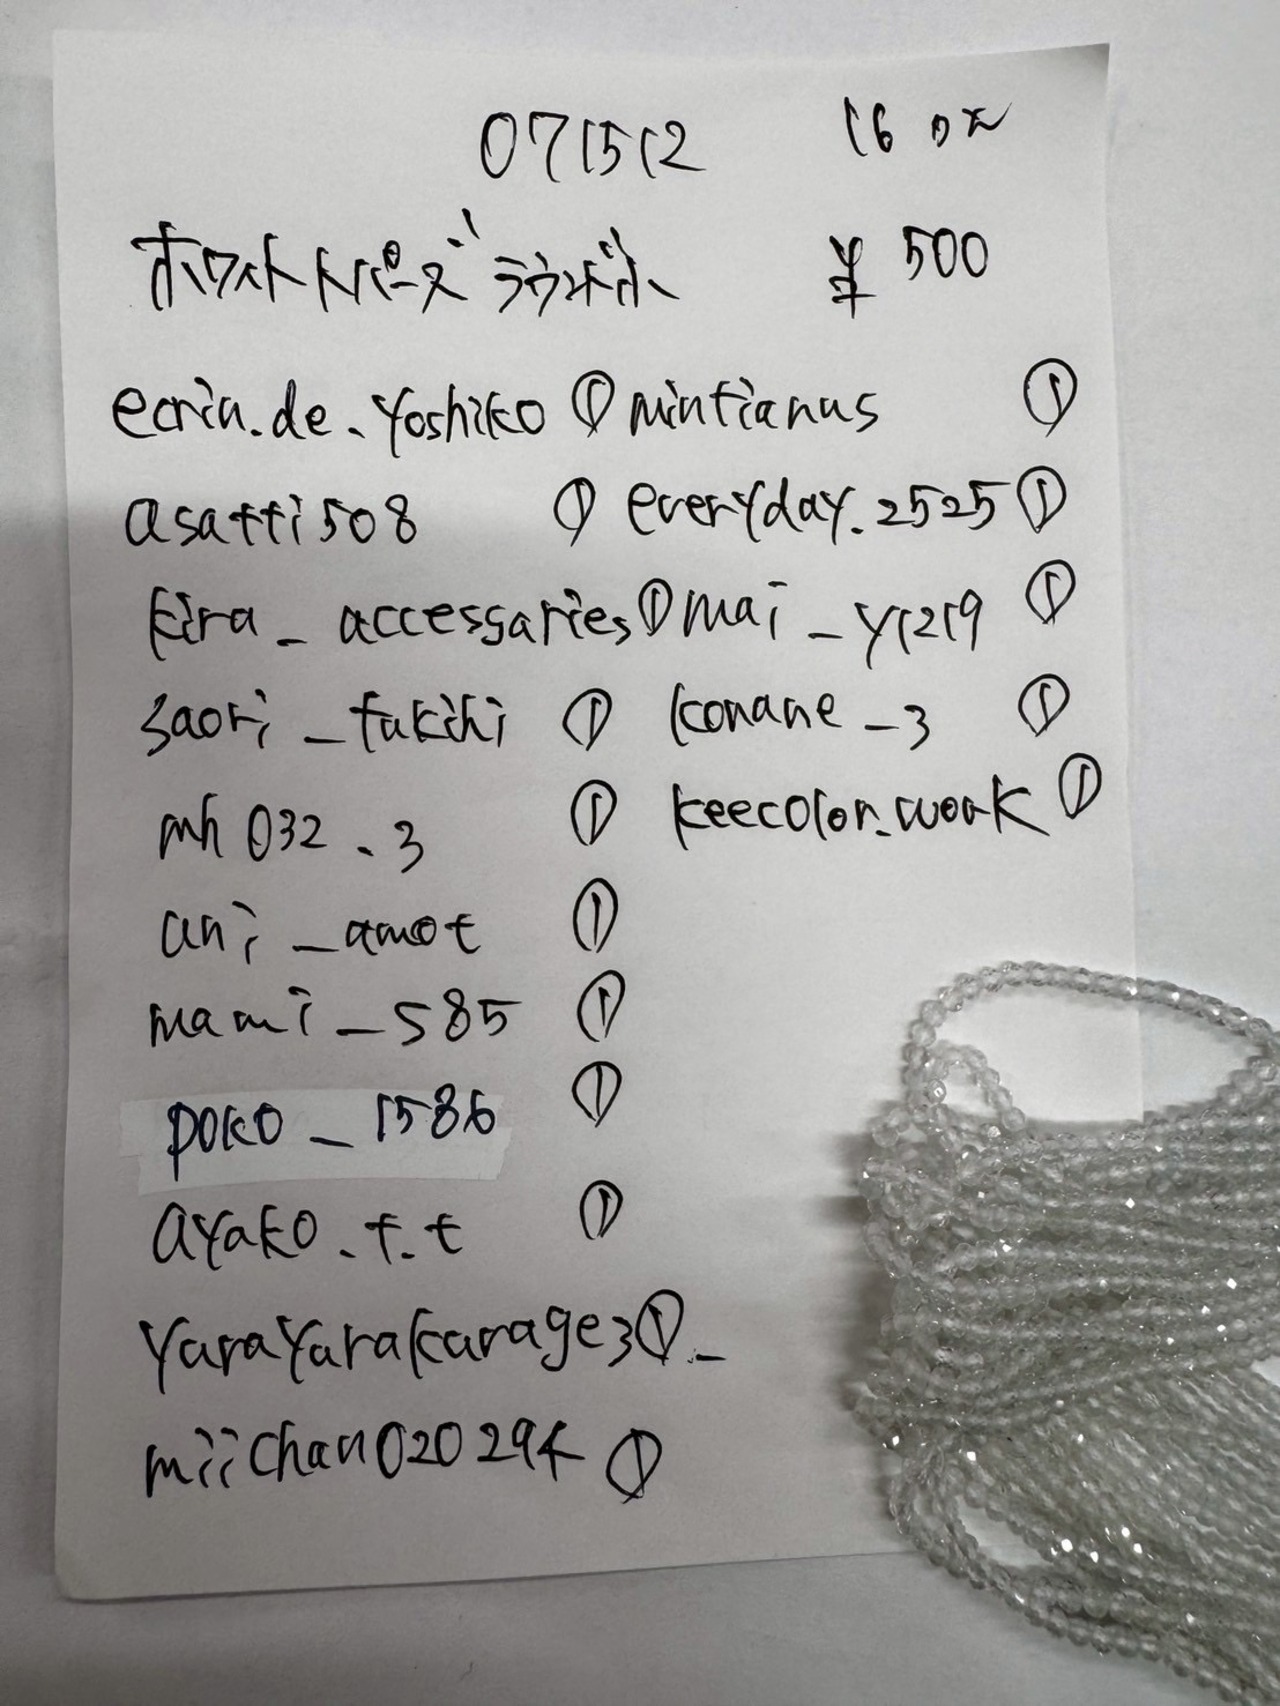 071512 16
ホワイトトパーズ ラウンド小 ¥500
ecrin.de.yoshiko ① mintianus ①
asatti508 ① everyday.2525 ①
kira_accessaries ① mai_y1219 ①
saori_fukihi ① konane_3 ①
mh032.3 ① keecolor.work ①
ani_amot ①
mami_585 ①
poko_1586 ①
ayako.t.t ①
yarayarakarage3 ①_
miichan020294 ①